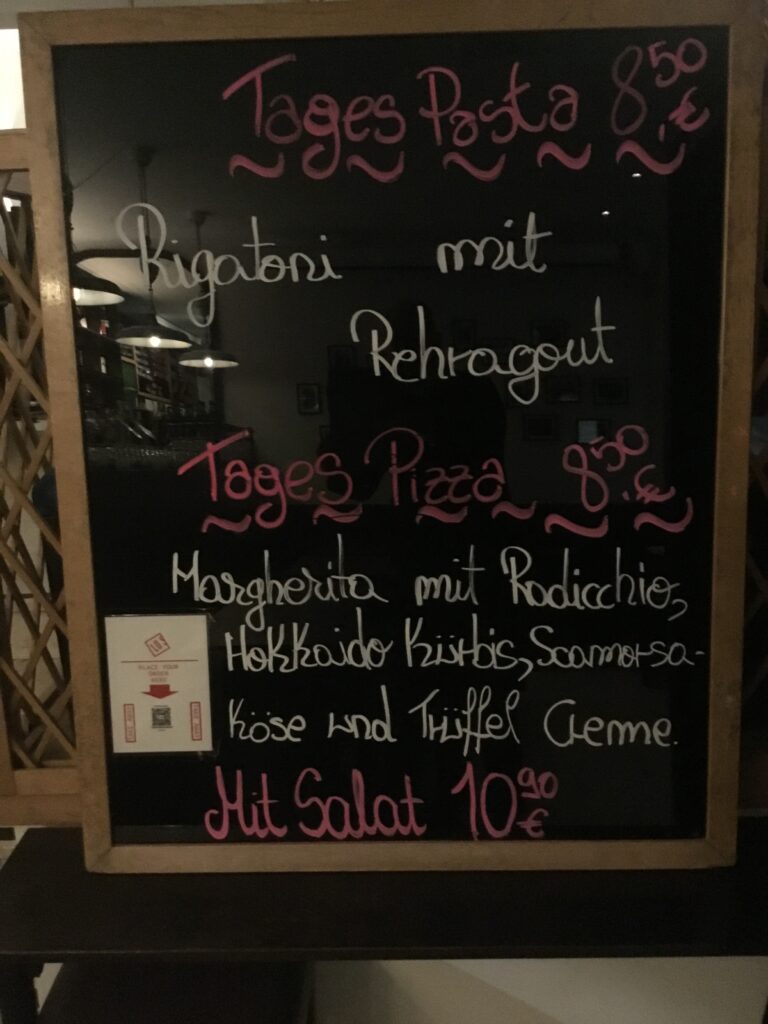 Tages Pasta 8,50 €
Rigatoni mit
Rehragout
Tages Pizza 8,50 €
Margherita mit Radicchio,
Hokkaido Kürbis, Scamorsa-
Köse und Trüffel Creme.
PLACE YOUR
ORDER
HERE
Mit Salat 10,90 €